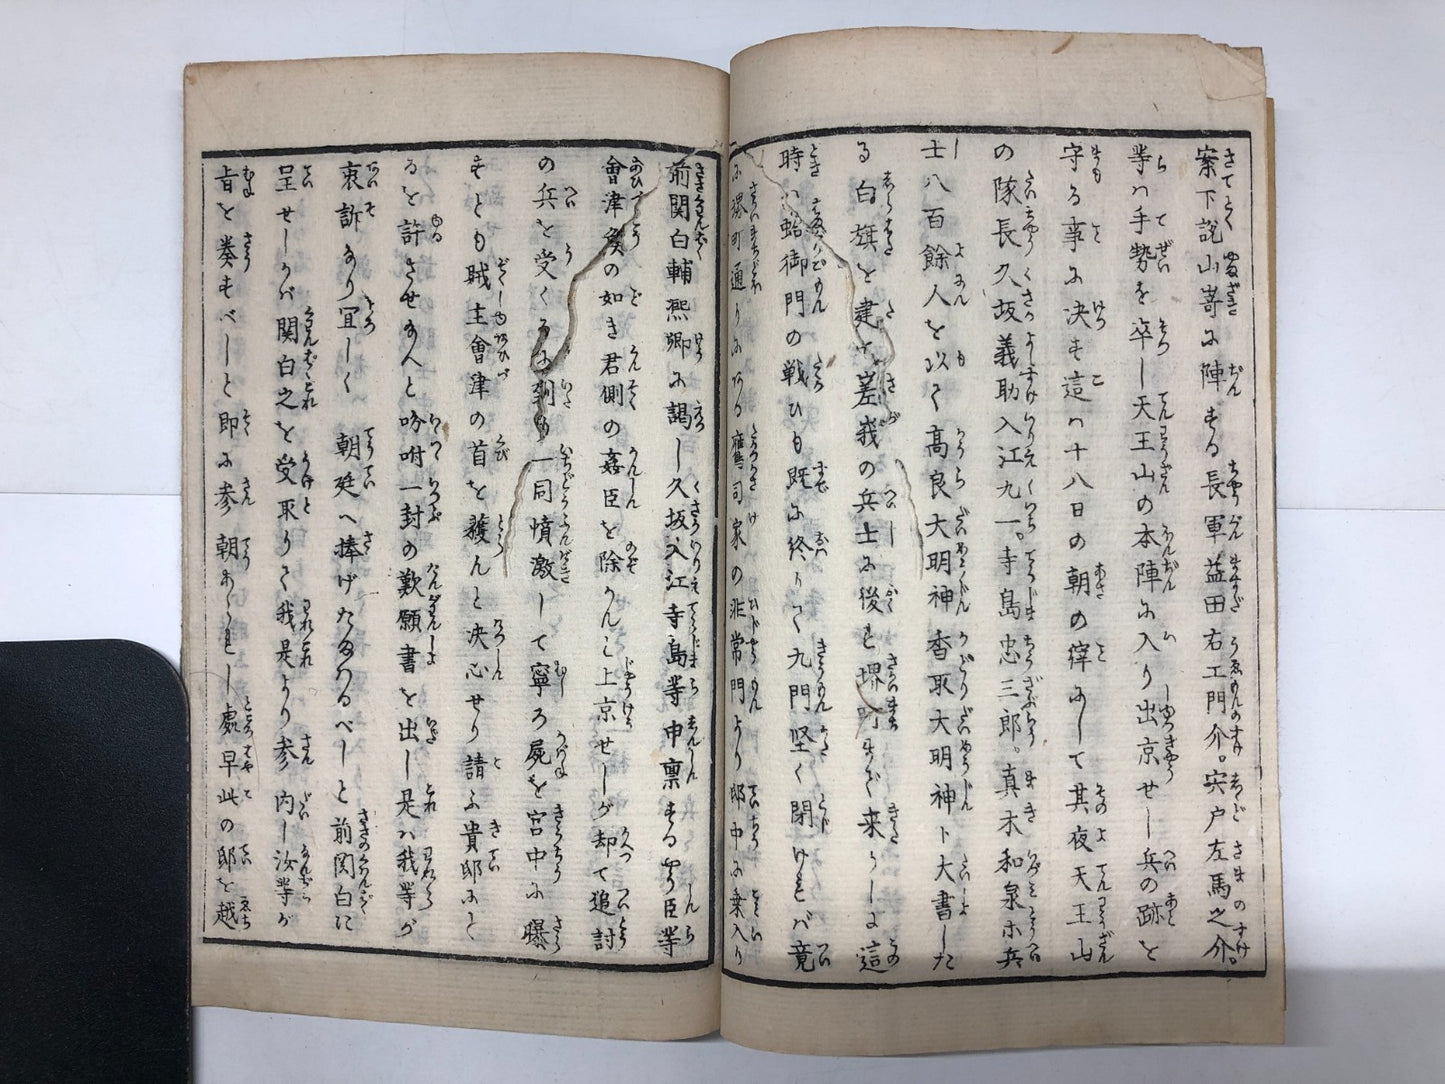 案下説山嵜に陣する長軍益田右エ門介。宍戸左馬之介。
等ハ手勢を卒し天王山の本陣に入り出京せし兵の跡を
守る事に决す這ハ十八日の朝の㕝にして其夜天王山
の隊長久坂義助入江九一。寺島忠三郎。真木和泉ホ兵
士八百餘人を以て高良大明神香取大明神ト大書した
る白旗を建て嵯峩の兵士に後れ堺町まで来りしに這
時ハ蛤御門の戦ひも既に終りて九門堅く閉けれバ竟
に堺町通りにある鷹司家の非常門より邸中に乗入り
前関白輔熙卿に謁し久坂入江寺島等申禀するやう臣等
會津矦の如き君側の姦臣を除かんと上京せしが却て追討
の兵を受く一同憤激して寧ろ屍を宮中に曝
すとも賊主會津の首を獲んと决心せり請ふ貴邸に
るを許させ給へと吟咐一封の歎願書を出し是ハ我等が
衷訴なり冝しく 朝廷へ捧げたまはるべしと前関白に
呈せしかバ関白之を受取りて我是より参内し汝等が
旨を奏すべしと即に参朝ありし處早此の邸を越